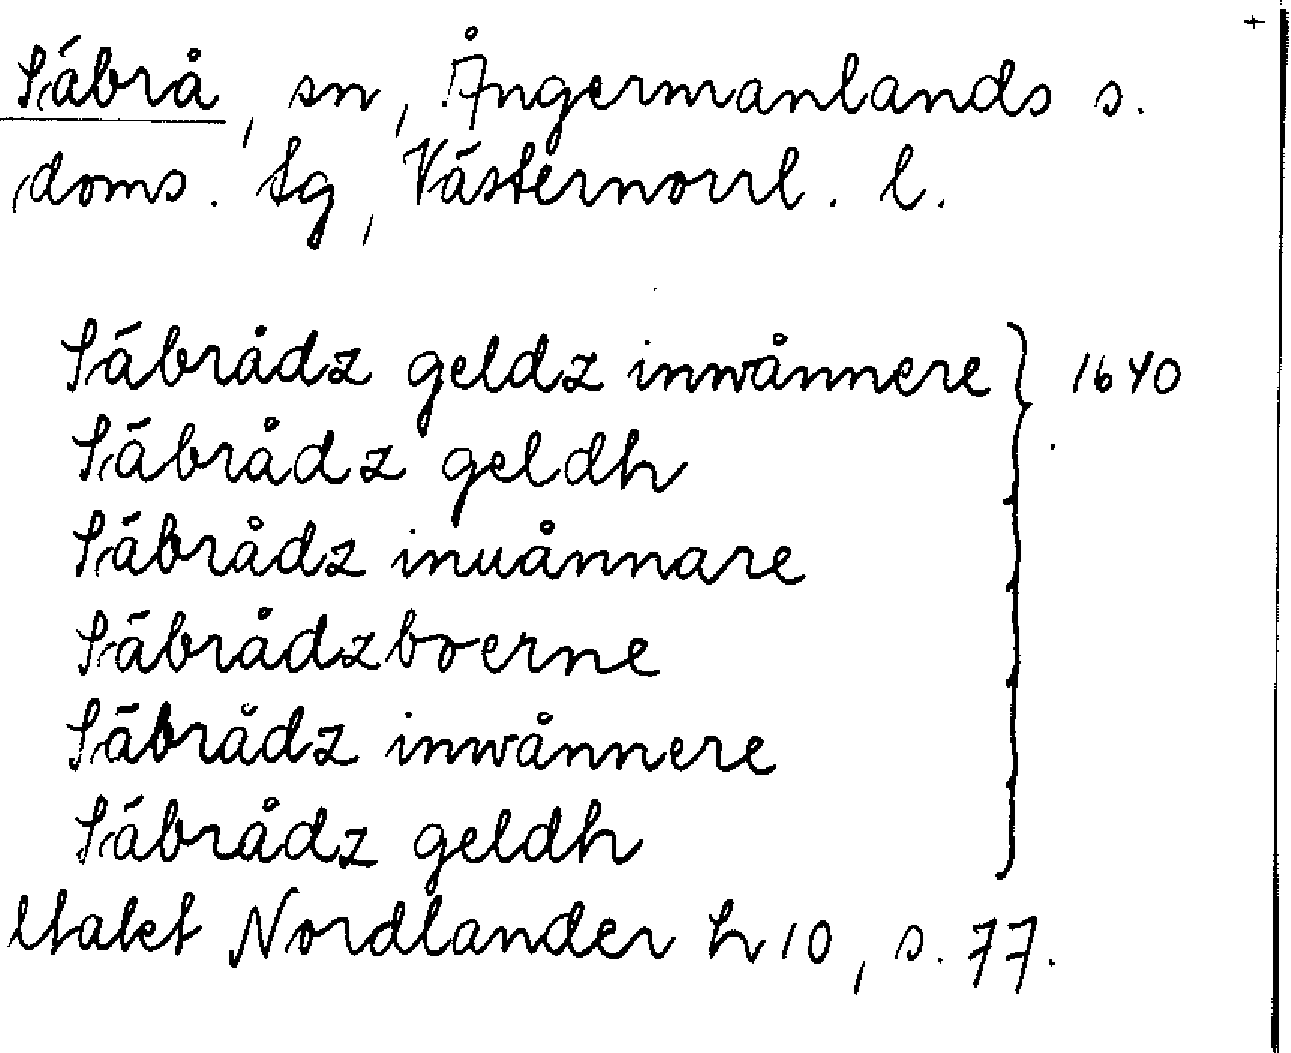 Säbrå, sn, Ångermanlands s.
doms. tg, Västernorrl. l.
Säbrådz geldz inwånnere } 1640
Säbrådz geldh
Säbrådz inuånnare
Säbrådzboerne
Säbrådz inwånnere
Säbrådz geldh
Utalet Nordlander h 10, s. 77.